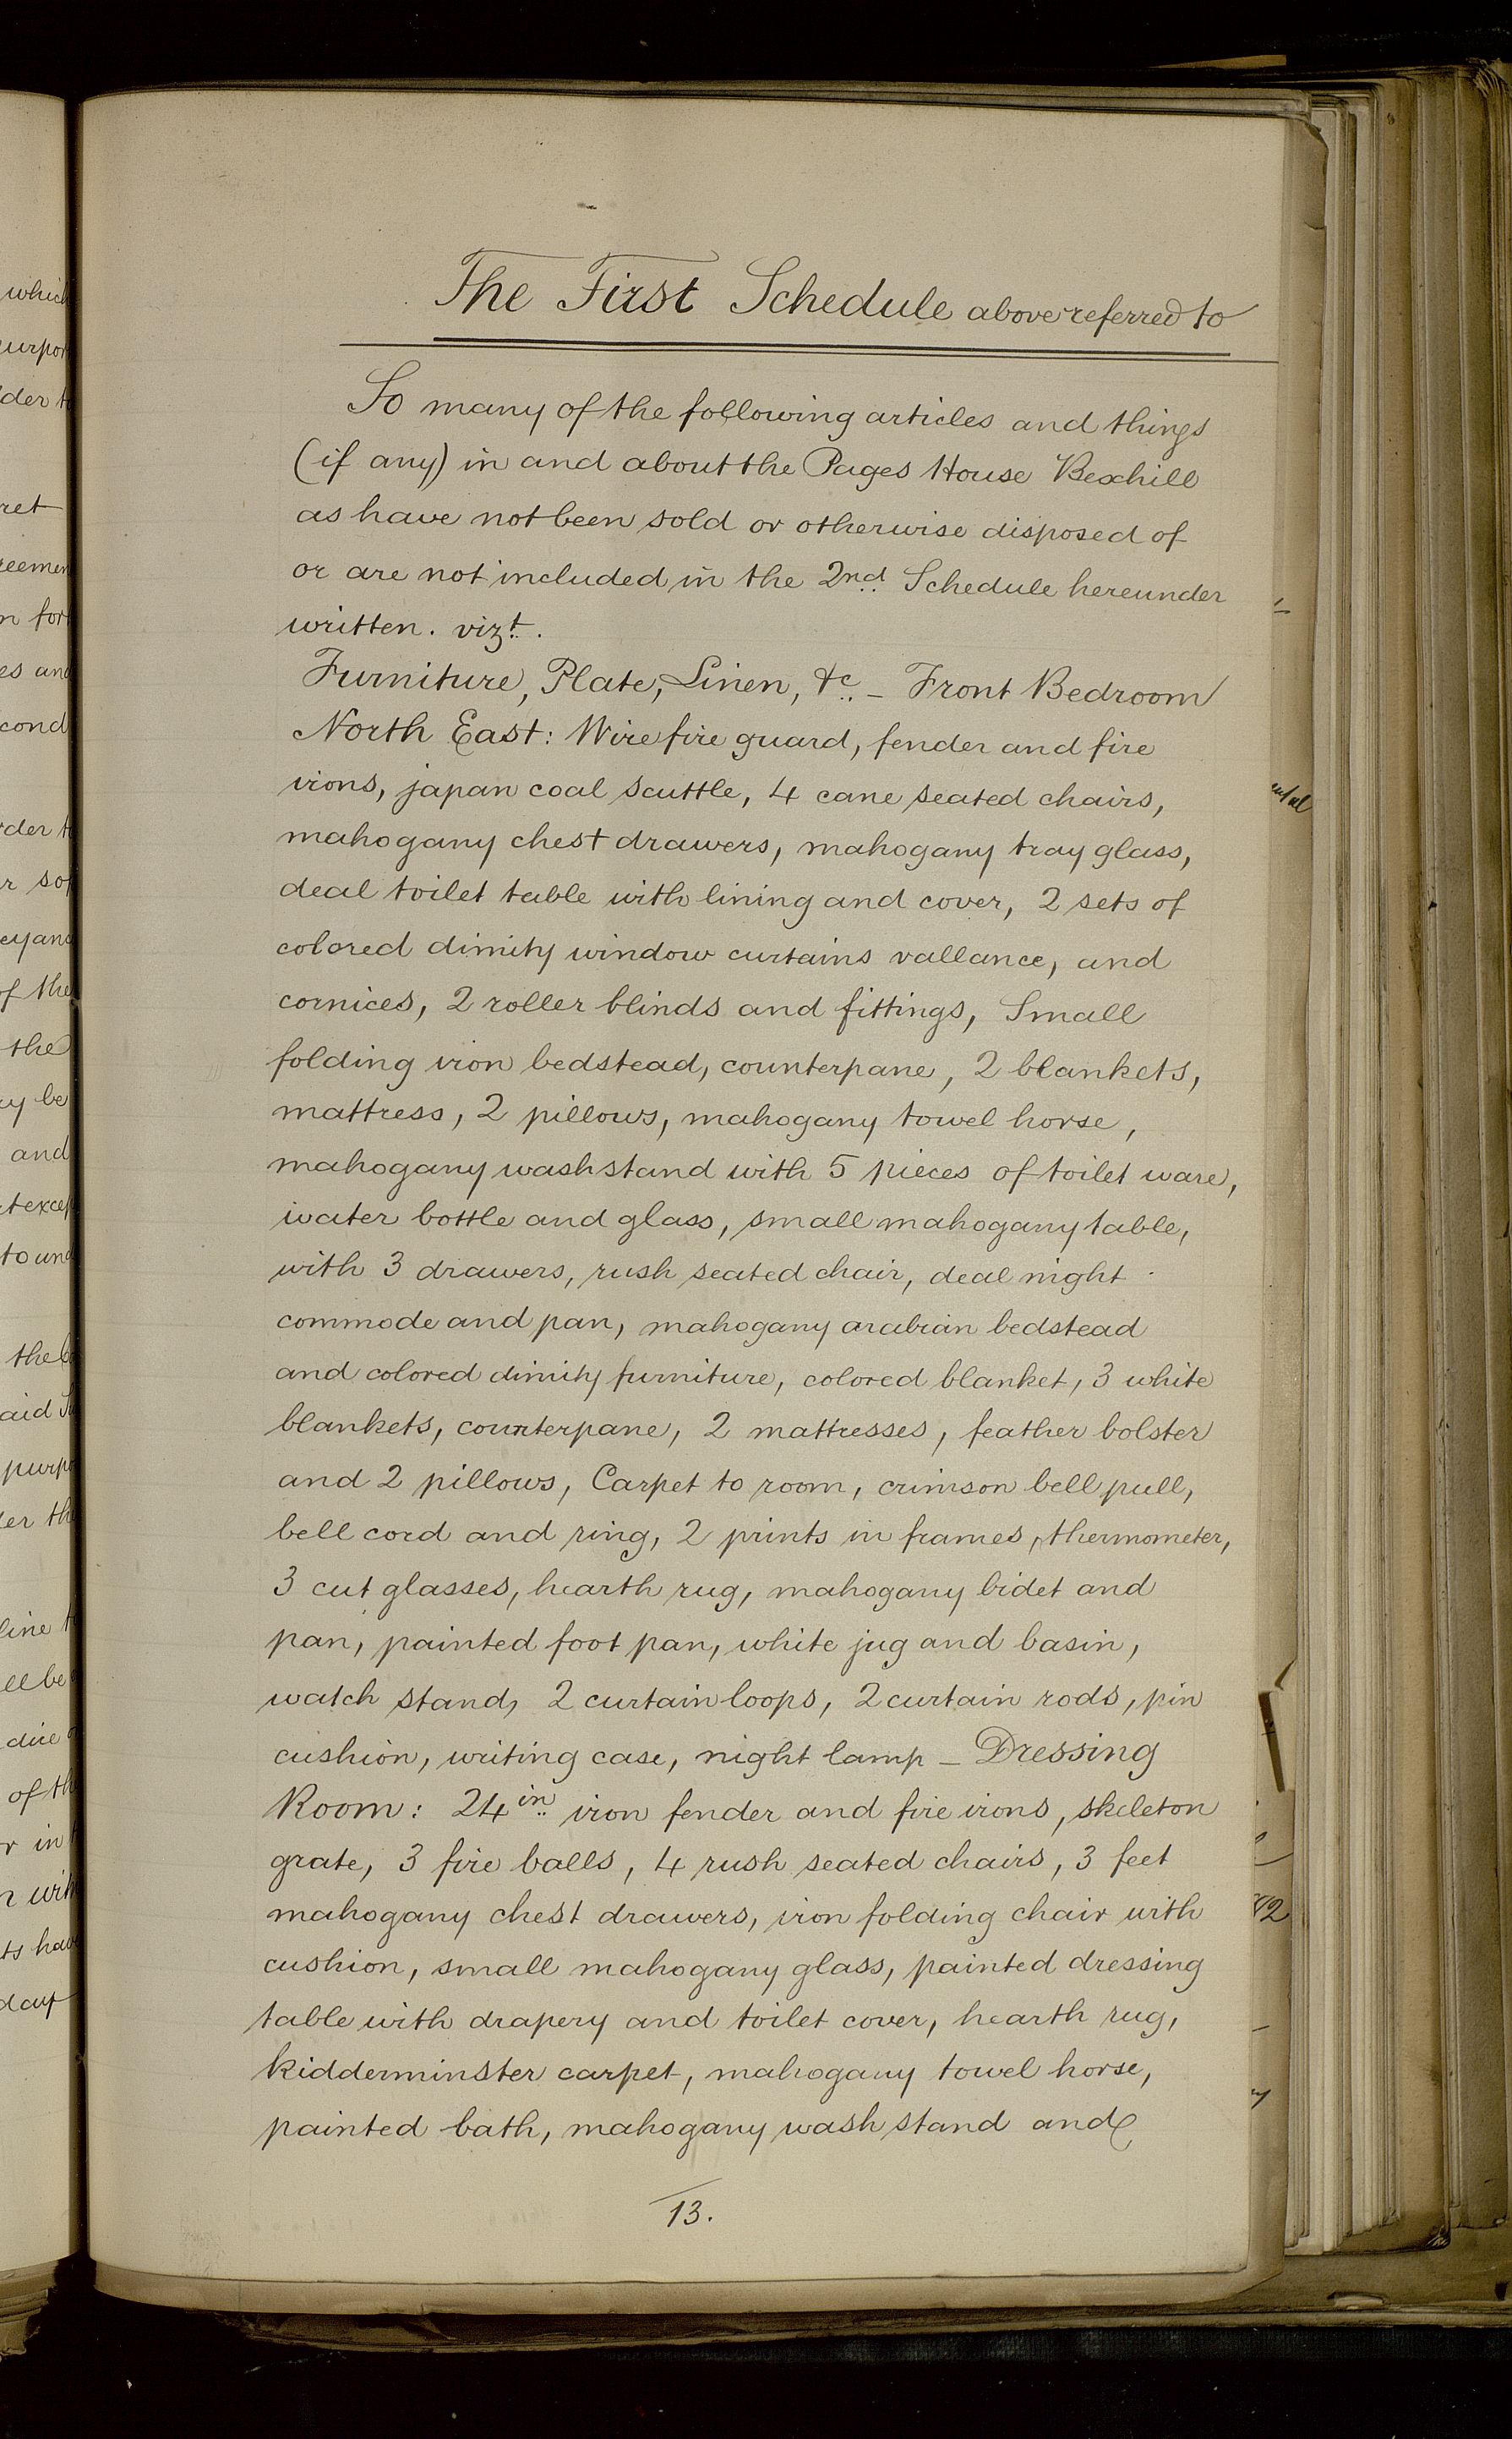 The First Schedule above referred to
So many of the following articles and things
(if any) in and about the Pages House Bexhill
as have not been sold or otherwise disposed of
or are not included in the 2nd Schedule hereunder
written. vizt.
Furniture, Plate, Linen, &c. – Front Bedroom
North East: Wire fire guard, fender and fire
irons, japan coal scuttle, 4 cane seated chairs,
mahogany chest drawers, mahogany tray glass,
deal toilet table with lining and cover, 2 sets of
colored dimity window curtains vallance, and
cornices, 2 roller blinds and fittings, Small
folding iron bedstead, counterpane, 2 blankets,
mattress, 2 pillows, mahogany towel horse,
mahogany washstand with 5 pieces of toilet ware,
water bottle and glass, small mahogany table,
with 3 drawers, rush seated chair, deal night
commode and pan, mahogany arabian bedstead
and colored dimity furniture, colored blanket, 3 white
blankets, counterpane, 2 mattresses, feather bolster
and 2 pillows, Carpet to room, crimson bell pull,
bell cord and ring, 2 prints in frames, thermometer,
3 cut glasses, hearth rug, mahogany bidet and
pan, painted foot pan, white jug and basin,
watch stand, 2 curtain loops, 2 curtain rods, pin
cushion, writing case, night lamp – Dressing
Room: 24in iron fender and fire irons, skeleton
grate, 3 fire balls, 4 rush seated chairs, 3 feet
mahogany chest drawers, iron folding chair with
cushion, small mahogany glass, painted dressing
table with drapery and toilet cover, hearth rug,
Kidderminster carpet, mahogany towel horse,
painted bath, mahogany wash stand and
13.